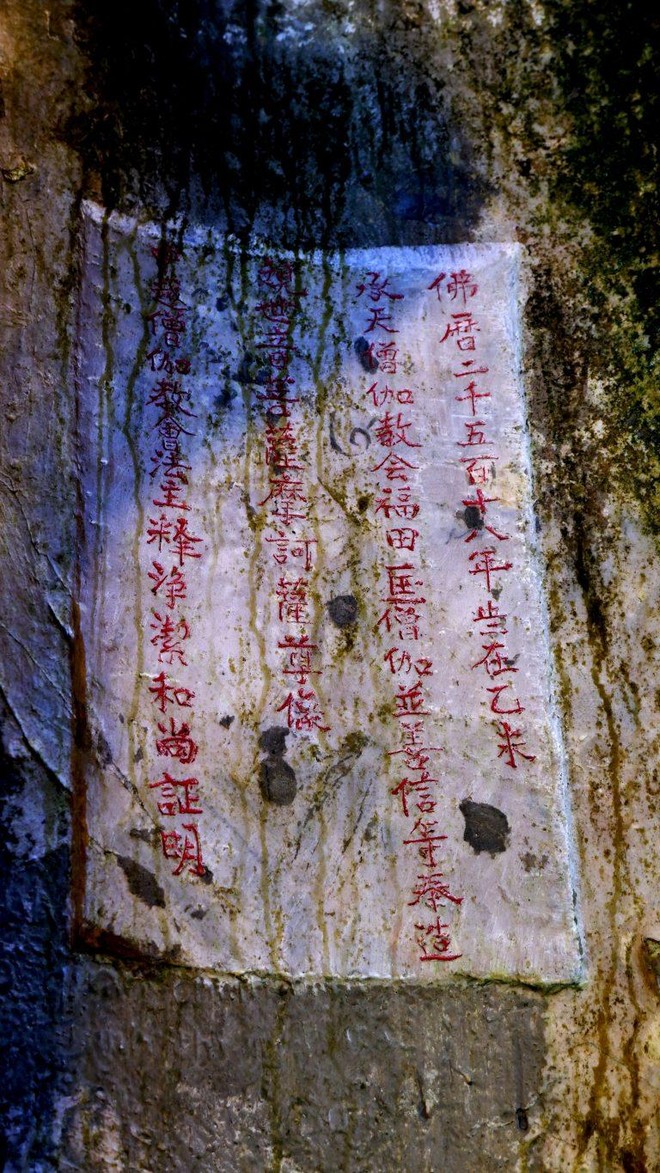 佛暦二千五百十八年岁在乙未
承天僧伽教会福田匡僧伽並善信等奉造
世音菩薩摩訶薩尊像
越僧伽教會法主釋淨潔和尚証明